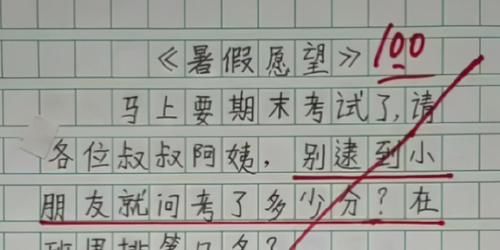 《暑假愿望》 100
马上要期末考试了,请
各位叔叔阿姨，别逮到小
朋友就问考了多少分？在